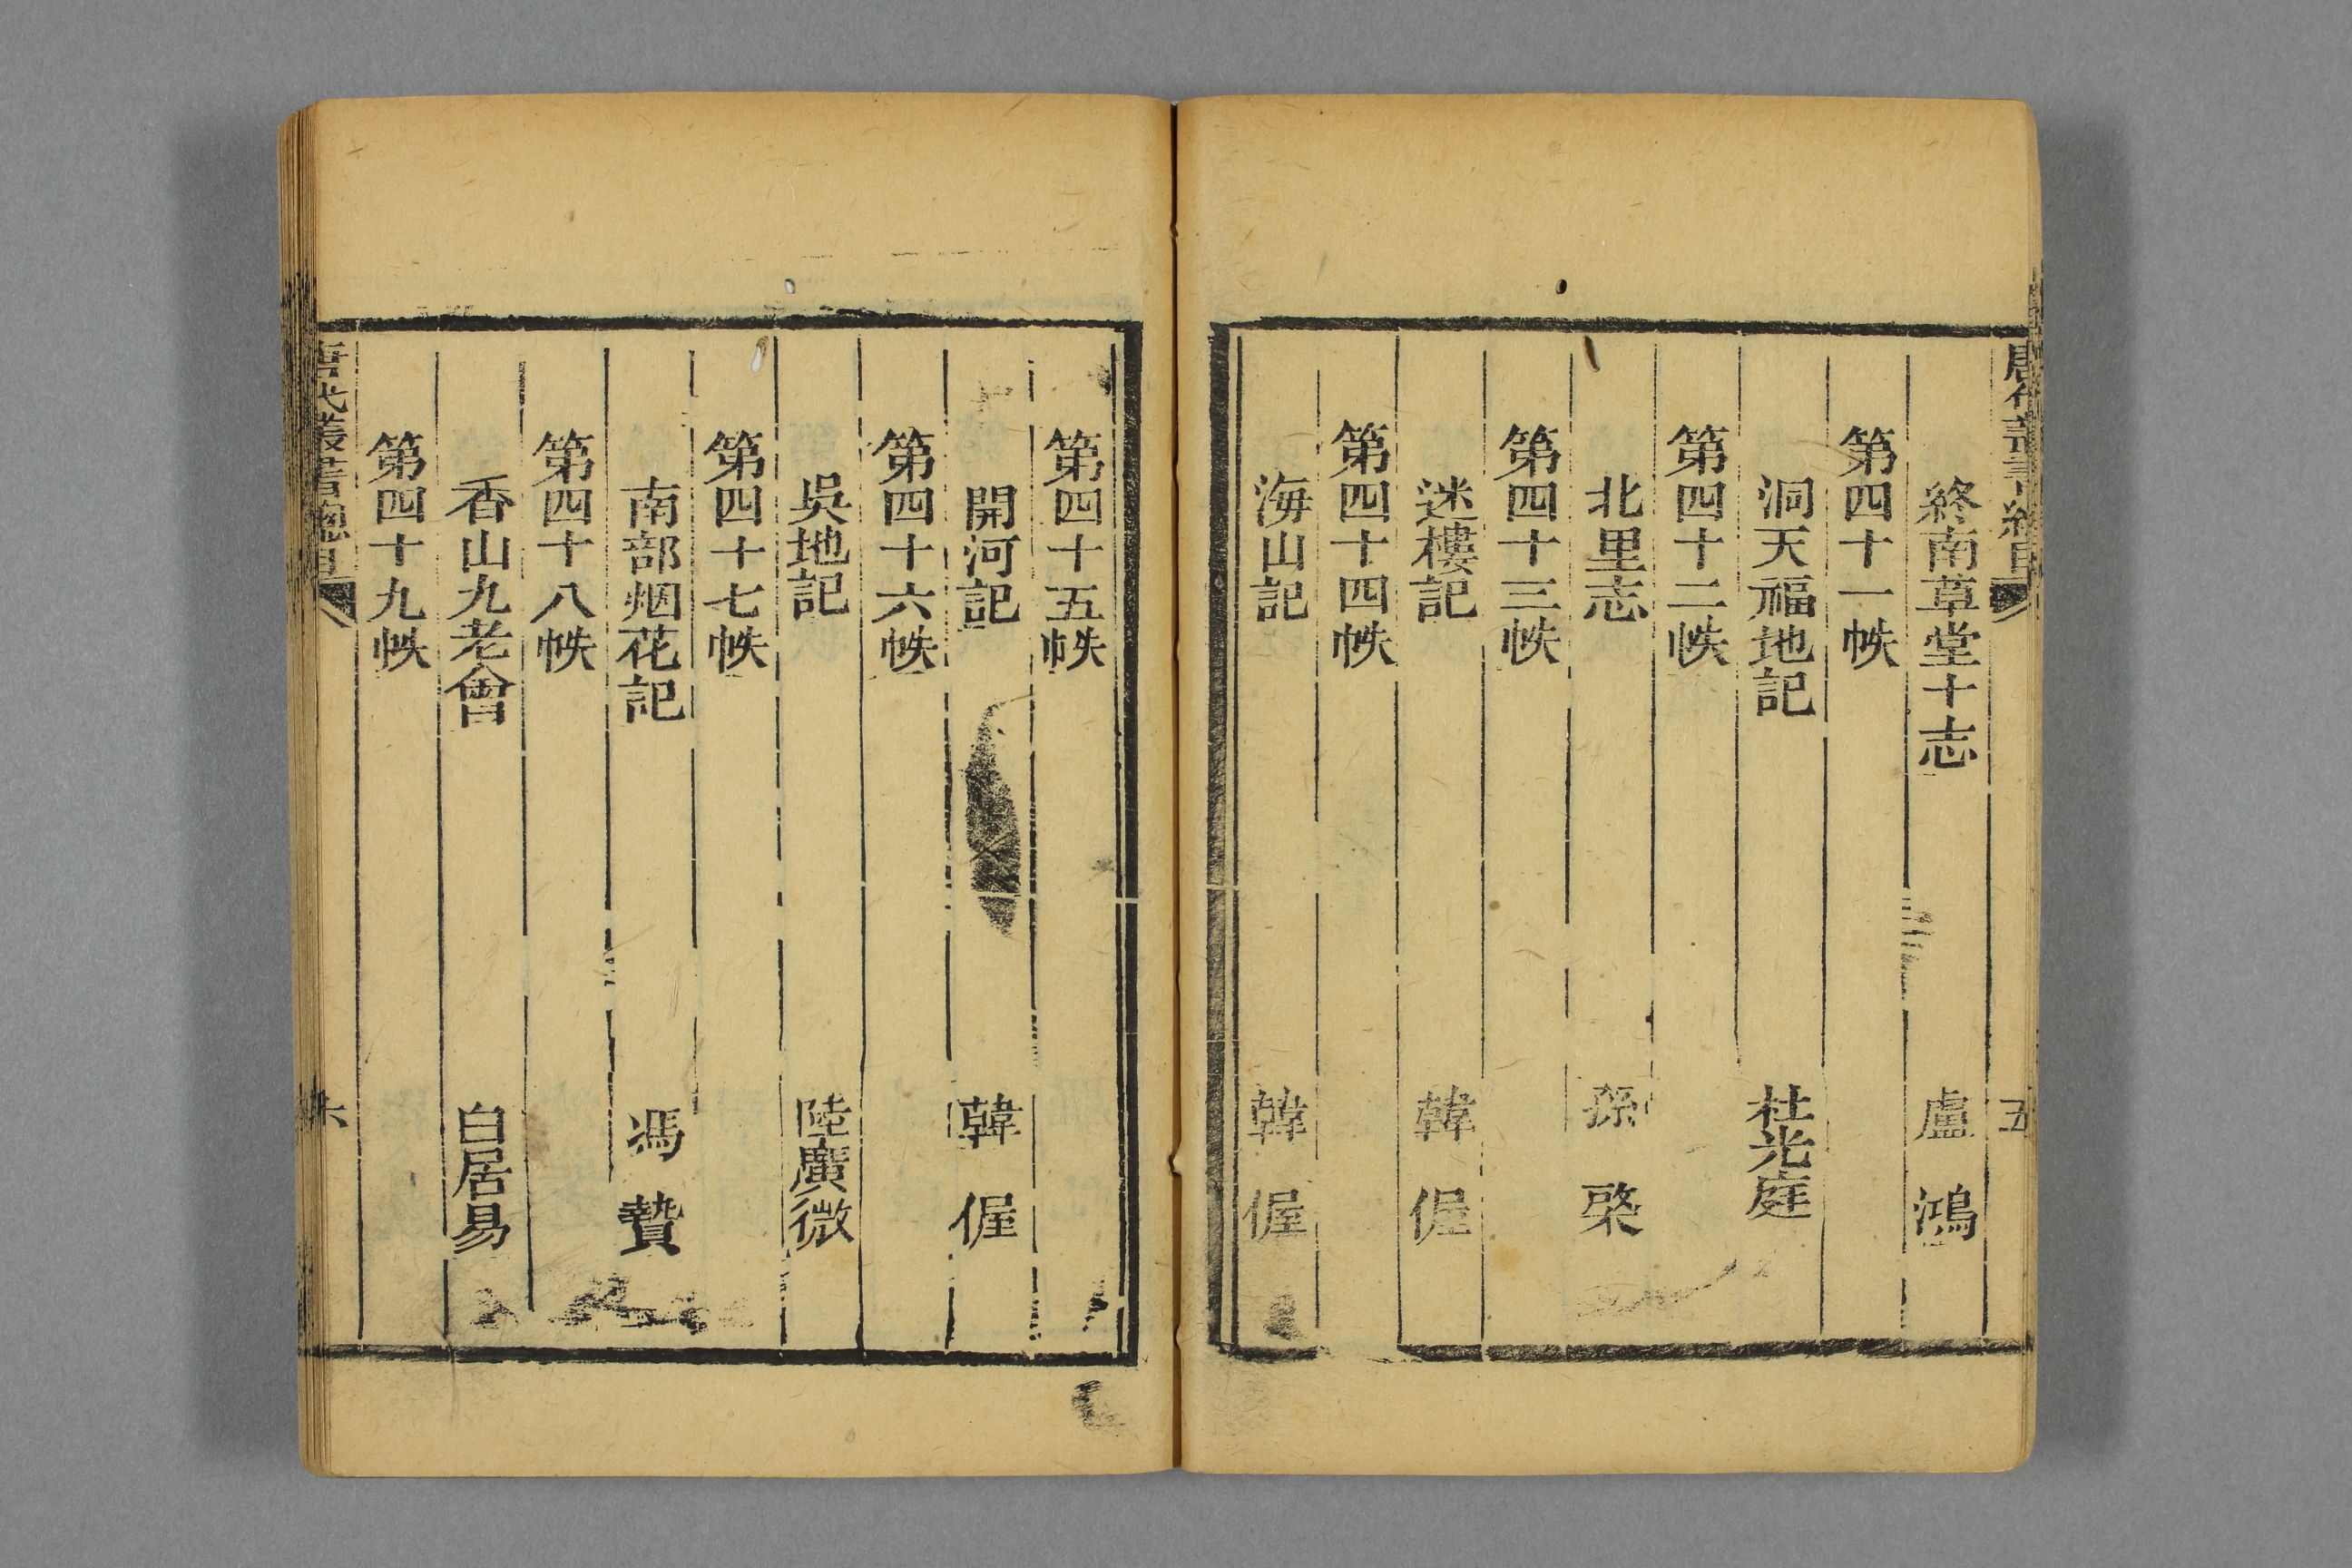 唐代叢書總目 五
終南草堂十志 盧鴻
第四十一帙
洞天福地記 杜光庭
第四十二帙
北里志 孫棨
第四十三帙
迷樓記 韓偓
第四十四帙
海山記 韓偓
第四十五帙
開河記 韓偓
第四十六帙
吳地記 陸廣微
第四十七帙
南部烟花記 馮贄
第四十八帙
香山九老會 白居易
第四十九帙
唐代叢書總目 六